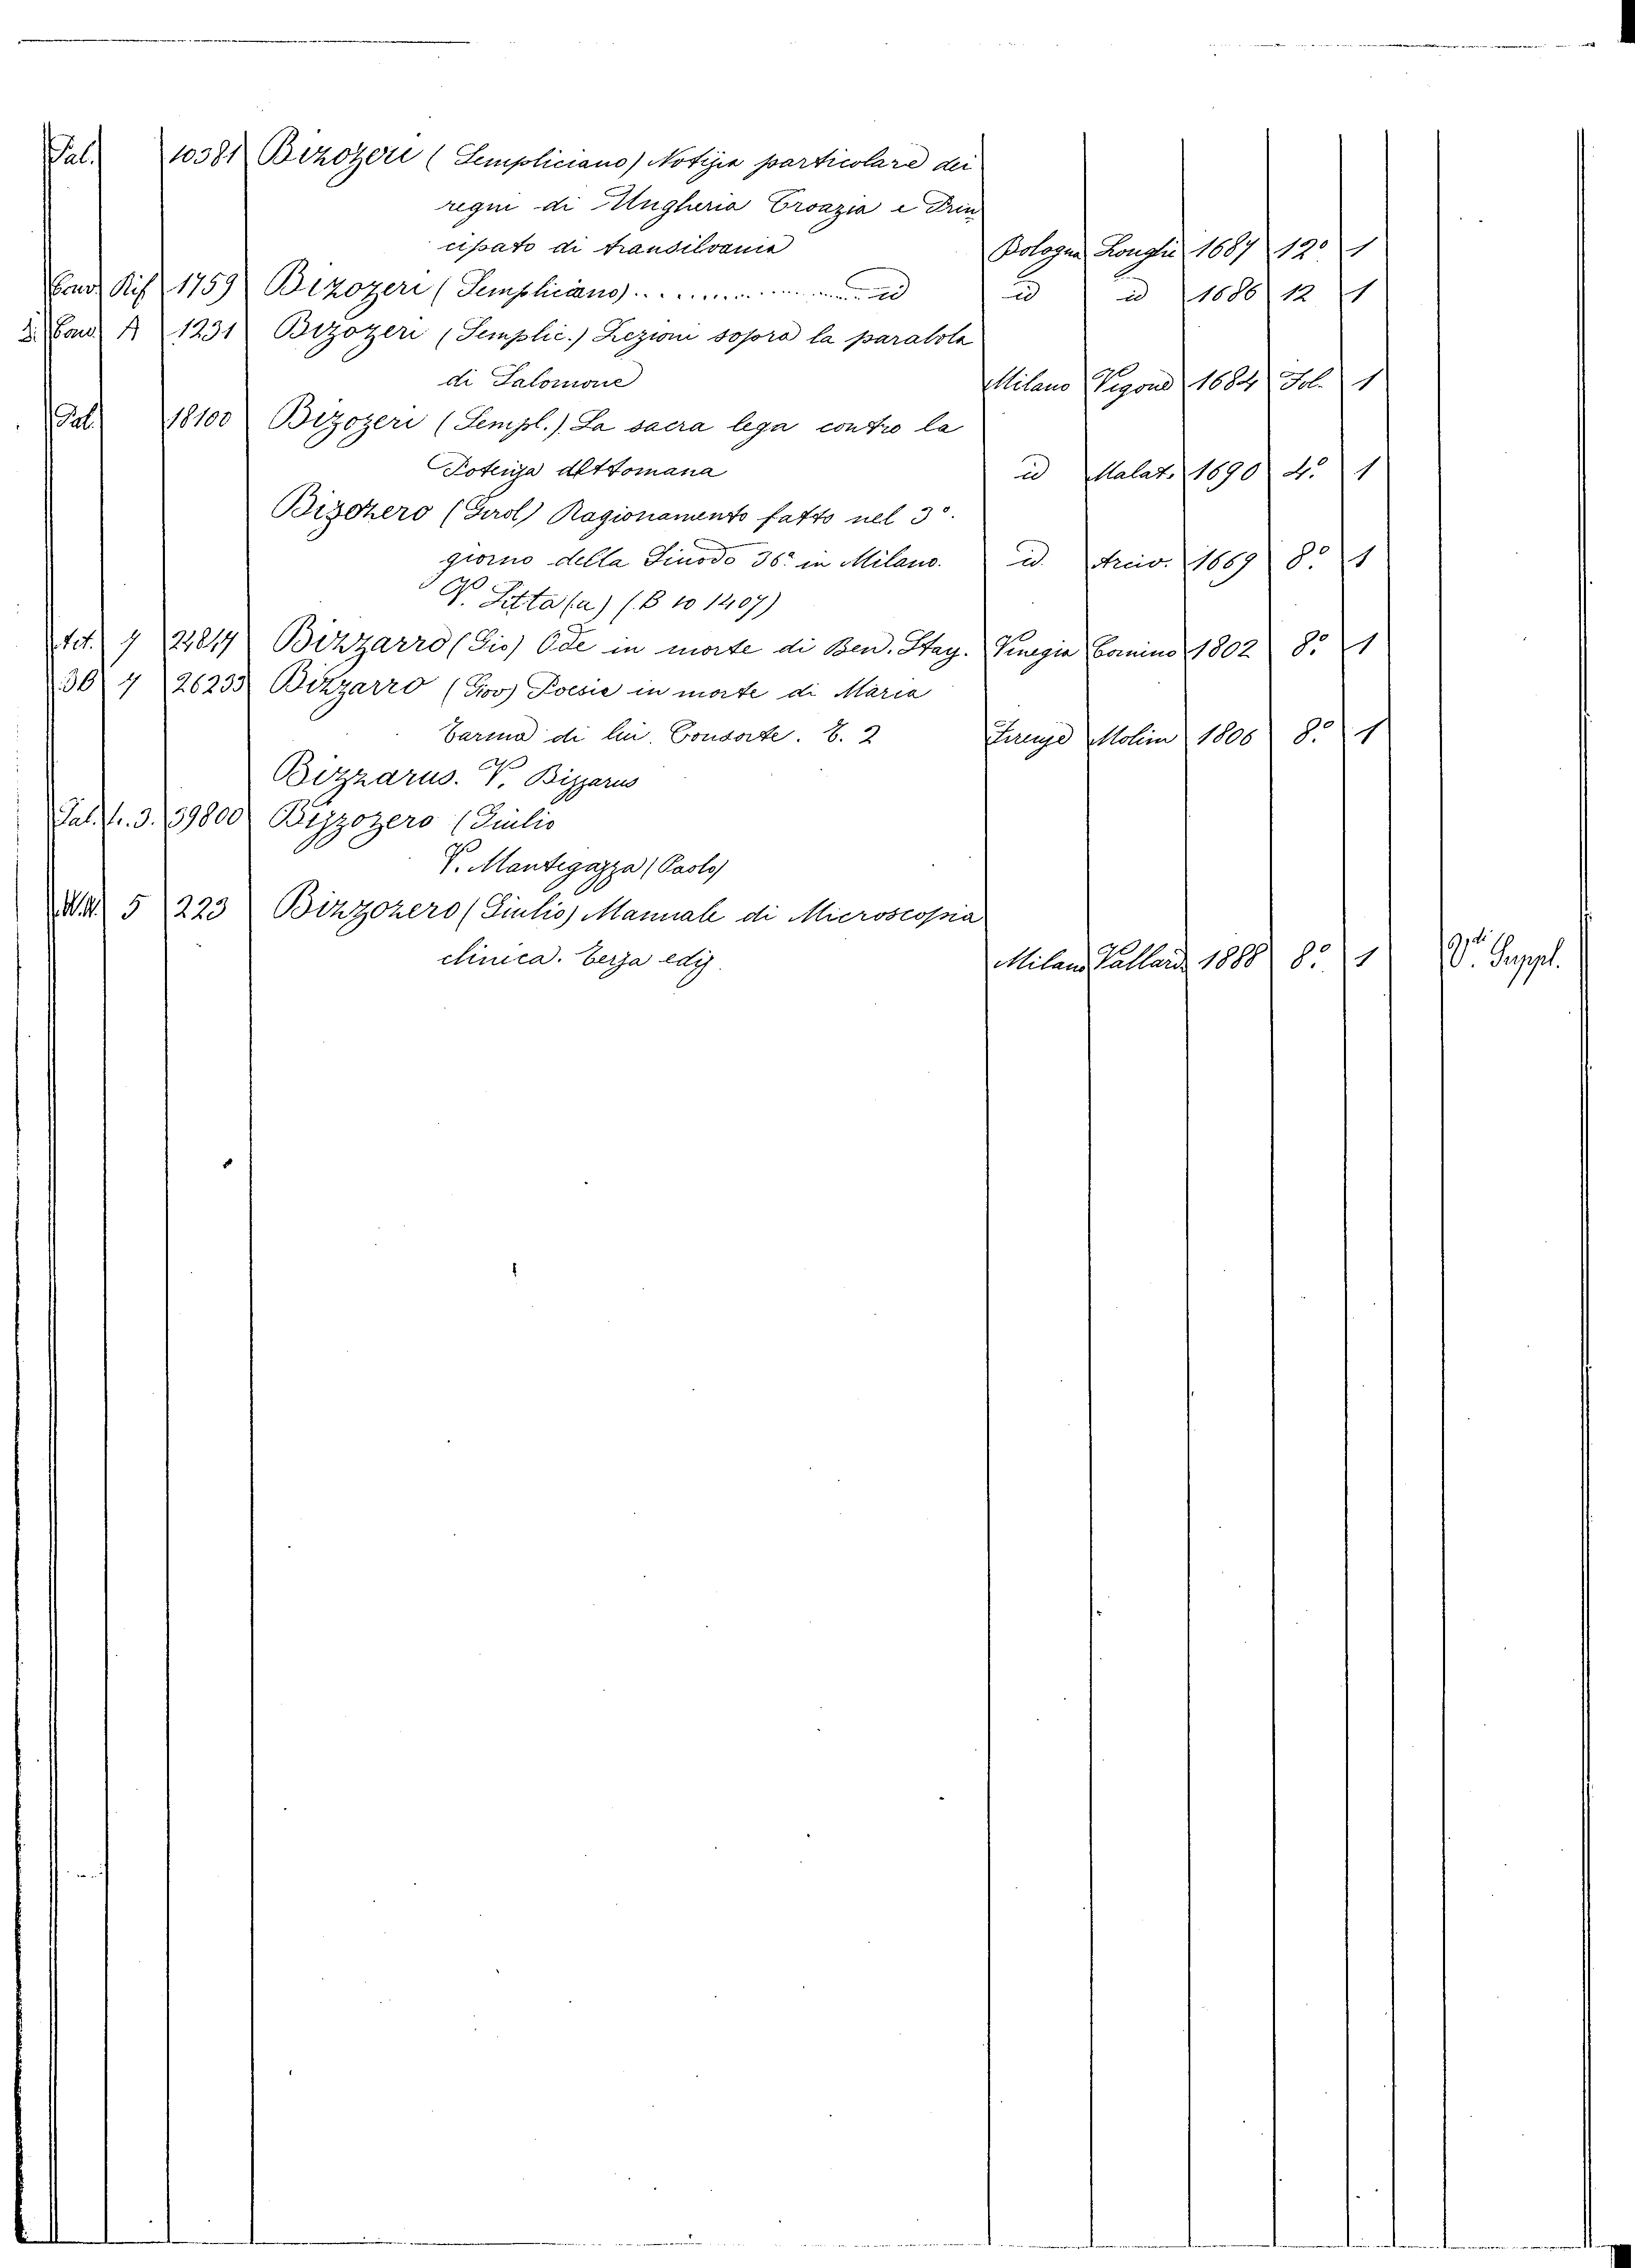 Pal. 10381 Bizozeri (Sempliciano) Notizia particolare dei
regni di Ungheria Croazia e Prin
cipato di transilvania Bologna Longhi 1687 12º 1
Conv Rif 1759 Bizozeri (Sempliciano) ........ id id id 1686 12 1
Conv A 1231 Bizozeri (Semplic.) Lezioni sopra la parabola
di Salomone Milano Vigone 1684 Fol. 1
Pal. 18100 Bizozeri (Sempl.) La sacra lega contro la
Potenza Ottomana id Malat. 1690 4º 1
Bizozero (Girol) Ragionamento fatto nel 3º.
giorno della Sinodo 36º in Milano. id. Arciv. 1669 8º 1
V. Sitta (a) (B 10 1407)
7 Bizzarro (Gio) Ode in morte di Ben. Stay. Venezia Comino 1802 8º 1
36 7 26233 Bizzarro (Giov) Poesie in morte di Maria
Carina di lui Consorte. E. 2 Firenze Molini 1806 8º 1
Bizzarus. V. Bizzarus
Pal. 3. 39800 Bizzozero (Giulio
V. Mantegazza (Paolo)
5 223 Bizzozero (Giulio) Manuale di Microscopia
clinica. Terza ediz. Milano Vallardi 1888 8º 1 Vdi Suppl.